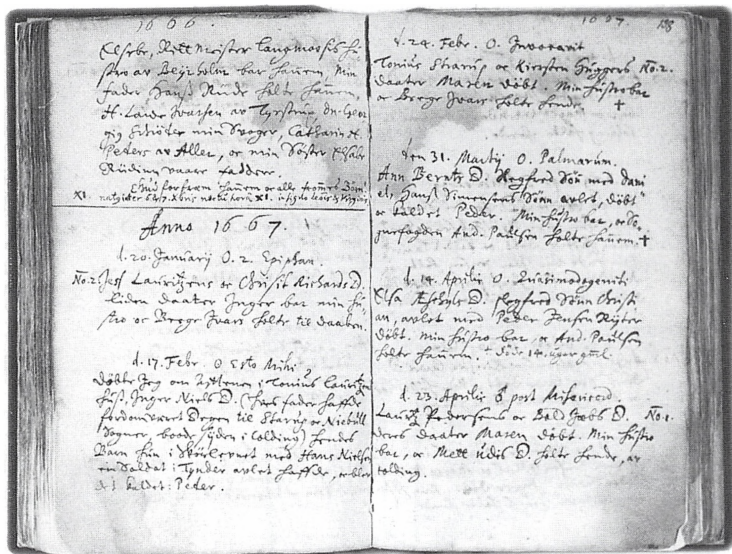 1666.
Elsebe, Ritt Meister Langmoesis hu-
stro av Beyrholm bar hanem, Min
fader Hanss Rude holte hanem,
H. Laue Ivarsen av Tyrstrup, Dn. Geor
gig Schröder min Svoger, Catharin H.
Peders av Aller, oc min Söster Elsabe
Rüding vaare faddere.
XI.
Anno 1667.
d. 20. Januarij D. 2. Epiphan.
No. 2. Jess Lauritzens oc Christ. Richards D.
liden daater Inger bar min hu-
stro oc Berge Ivars holte til daaben.
d. 17. Febr. D Esto Mihi
döbte Jeg om afftenen i Tonius Lauritzen
huss, Inger Niels D. (hvess fader haffde
fordom veret Degen til Starup oc Niebüll
Sogner, boode siden i Colding) hendes
Barn hun i Skörlevnet med Hans Nielsen
en Soldat i Tynder avlet haffde, oc blev
det kaldet: Peder.
1667. 188
d. 24. Febr. D. Invocavit
Tonius Starup oc Kiersten Huggers No. 2.
daater Maren döbt. Min hustro bar
oc Berge Ivars holte hende. †
den 31. Martij D. Palmarum.
Ann Berntz D. Slegfred Sön med Dani
el, Hanss Simensens Sönn avlet, döbt
oc kaldet Peder. Min hustro bar, oc Se-
gnefogden And. Paulsen holte hanem. †
d. 14. Aprilis D. Quasimodogeniti
Elsa Eschels D. Slegfred Sönn Christi
an, avlet med Peder Jensen Ryter
döbt. Min hustro bar, oc And. Paulsen
holte hanem. † döde 14. uger gml.
d. 23. Aprilis post Misericord.
Lauritz Pedersens oc Bold Jacobs D. No. 1.
deres daater Maren döbt. Min hustro
bar, oc Mett Udis D. holte hende, av
Colding.